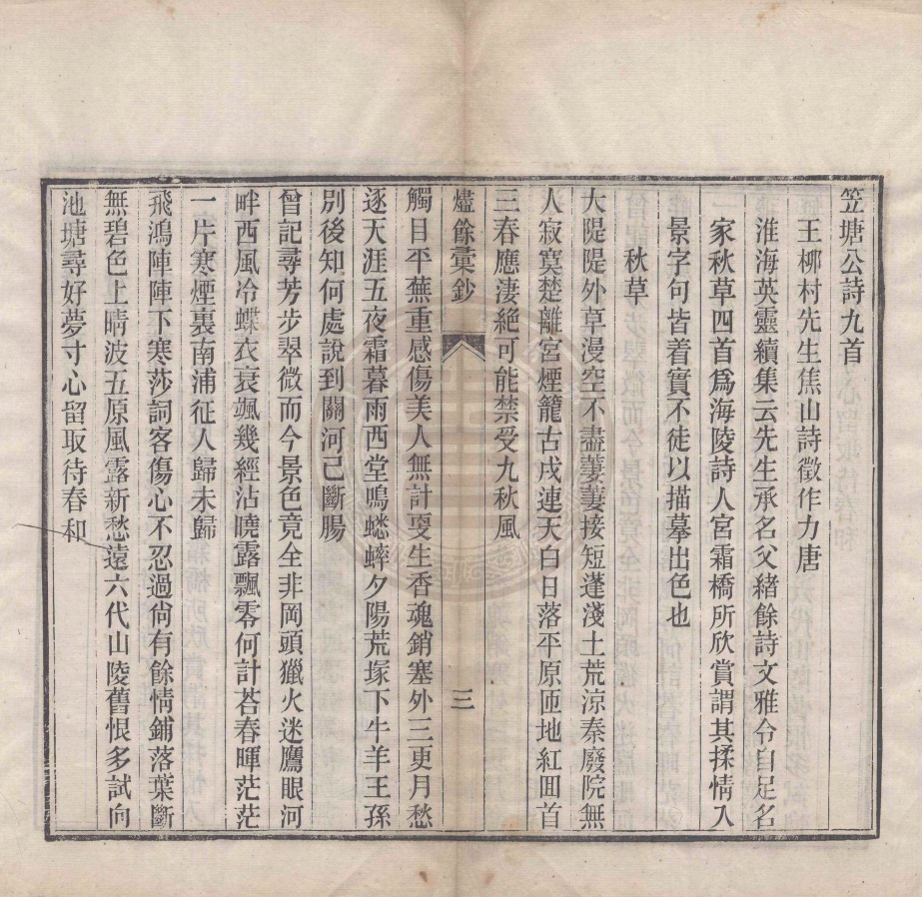 笠塘公詩九首
王柳村先生焦山詩徵作力唐
淮海英靈續集云先生承名父緒餘詩文雅令自足名
家秋草四首爲海陵詩人宮霜橋所欣賞謂其揉情入
景字句皆着實不徒以描摹出色也
秋草
大隄隄外草漫空不盡萋萋接短蓬淺土荒涼秦廢院無
人寂寞楚離宮煙籠古戍連天白日落平原匝地紅回首
三春應淒絕可能禁受九秋風
燼餘彙鈔
三
觸目平蕪重感傷美人無計更生香魂銷塞外三更月愁
逐天涯五夜霜暮雨西堂鳴蟋蟀夕陽荒塚下牛羊王孫
別後知何處說到關河已斷腸
曾記尋芳步翠微而今景色竟全非岡頭獵火迷鷹眼河
畔西風冷蝶衣衰颯幾經沾曉露飄零何計荅春暉茫茫
一片寒煙裏南浦征人歸未歸
飛鴻陣陣下寒莎詞客傷心不忍過尙有餘情鋪落葉斷
無碧色上晴波五原風露新愁遠六代山陵舊恨多試向
池塘尋好夢寸心留取待春和